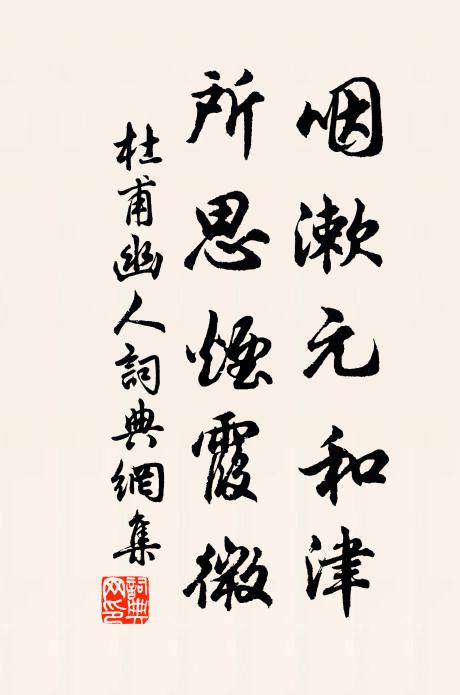 咽漱元和津
所思煙霞微
杜甫幽人詞典網集
詞典网印